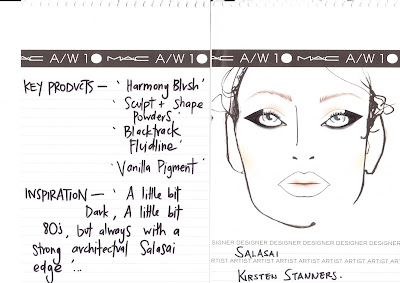 MAC A/W 10 MAC A/W 10
KEY PRODUCTS — 'Harmony Blush'
'Sculpt + Shape
Powders'
'Blacktrack
Fluidline'
'Vanilla Pigment'
INSPIRATION — 'A little bit
Dark, A little bit
80s, but always with a
strong architectual Salasai
edge'...
MAC A/W 10 MAC A/W 10
SIGNER DESIGNER DESIGNER DESIGNER DESIGNER DESIGNER
SALASAI
ARTIST ARTIST ARTIST ARTIST ARTIST ARTIST ARTIST ARTIST
KIRSTEN STANNERS.